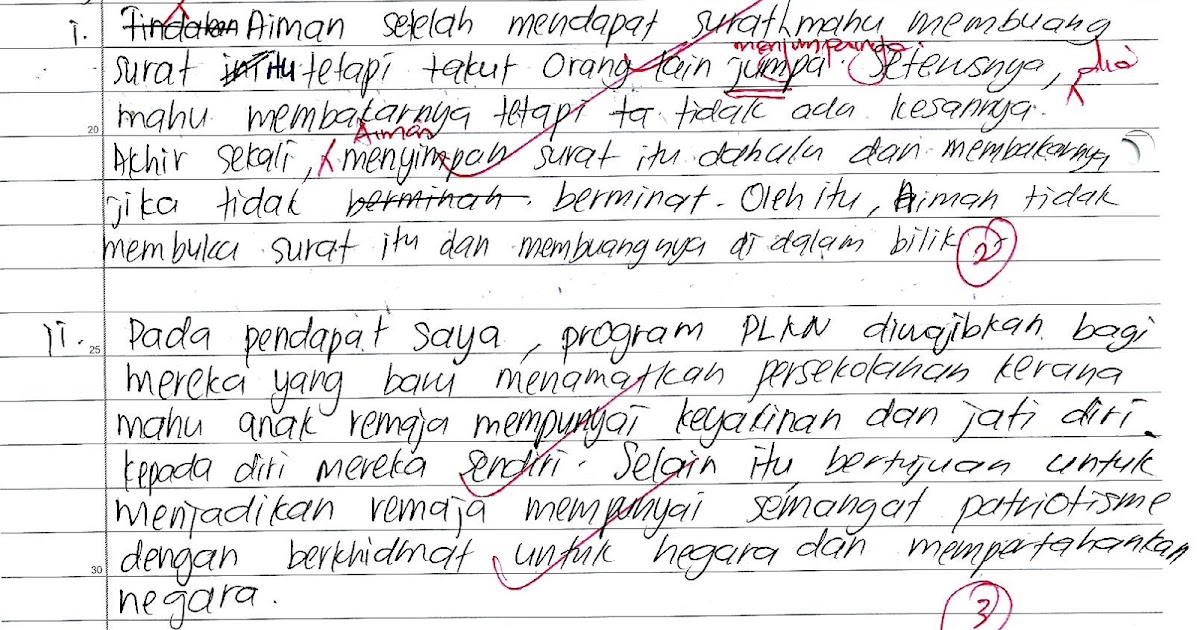 i. Tindakan Aiman setelah mendapat surat mahu membuang
menjumpainya
surat ini itu tetapi takut orang lain jumpa. Seterusnya, dia
mahu membakarnya tetapi ta tidak ada kesannya.
20
Aiman
Akhir sekali, menyimpan surat itu dahulu dan membakarnya
jika tidak berminah. berminat. Oleh itu, Aiman tidak
membuka surat itu dan membuangnya di dalam bilik.
2
ii. Pada pendapat saya, program PLKN diwajibkan bagi
25
mereka yang baru menamatkan persekolahan kerana
mahu anak remaja mempunyai keyakinan dan jati diri
kepada diri mereka sendiri. Selain itu, bertujuan untuk
menjadikan remaja mempunyai semangat patriotisme
dengan berkhidmat untuk negara dan mempertahankan
30
negara.
3